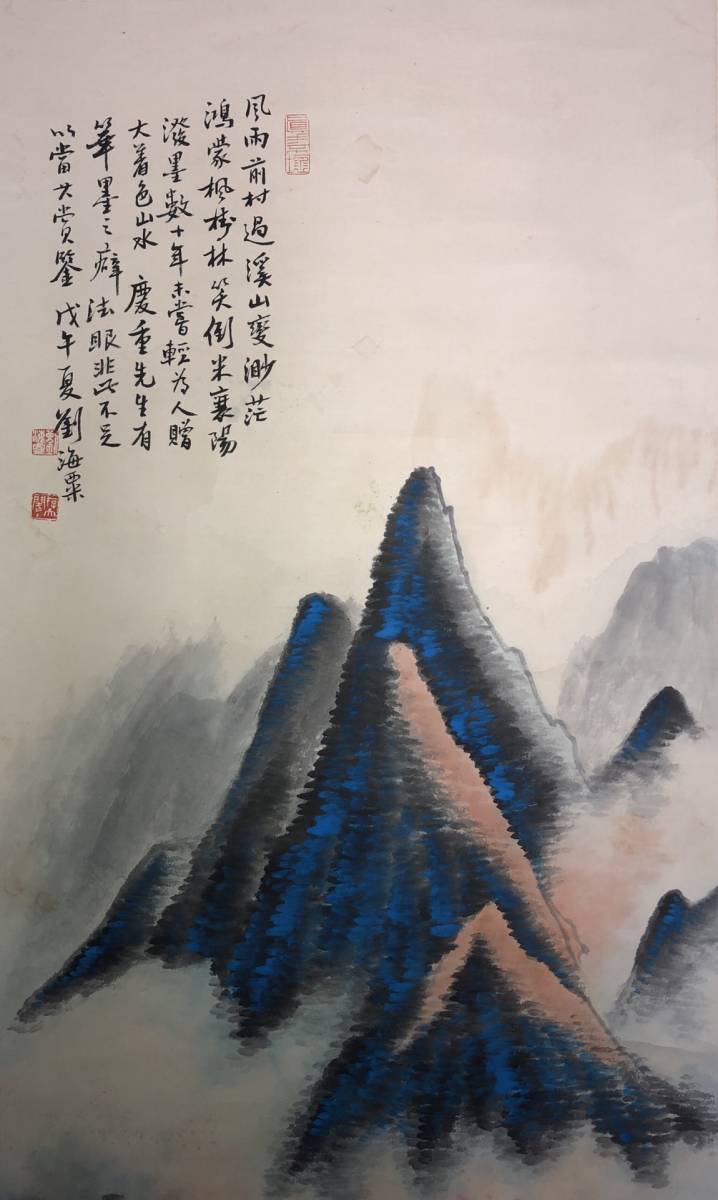 風雨前村過溪山變渺茫
鴻蒙楓樹林笑倒米襄陽
潑墨數十年未嘗輕為人贈
大着色山水 慶重先生有
筆墨之癖法眼非此不足
以當大賞鑒 戊午夏 劉海粟